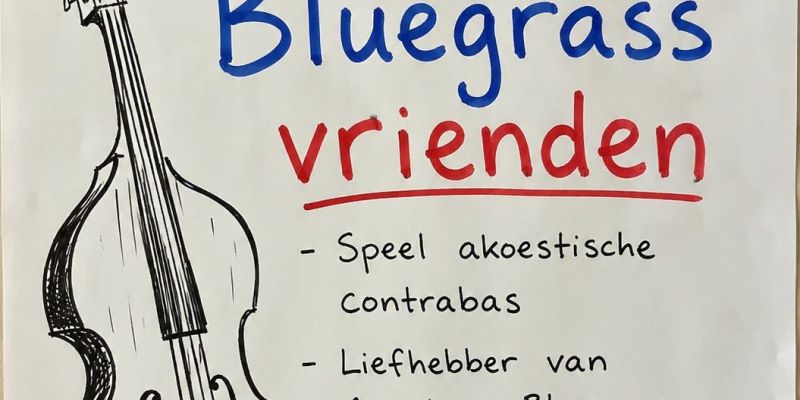 Bluegrass
vrienden
- Speel akoestische
contrabas
- Liefhebber van